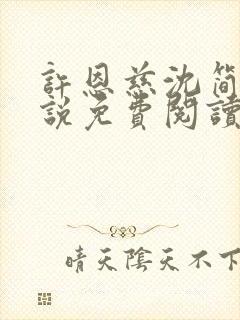 許恩慈沈簡
說免費閱讀
晴天陰天不下